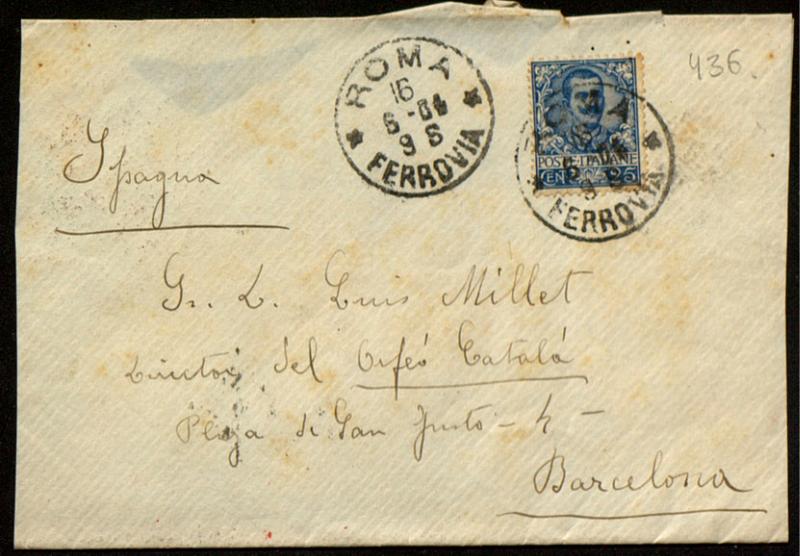 436.
ROMA
16
FERROVIA
ROMA
16
FERROVIA
POSTE ITALIANE
CENT. 25
Spagna
Sr. D. Luis Millet
Director del Orfeó Català
Plaza de San Justo - 4 -
Barcelona